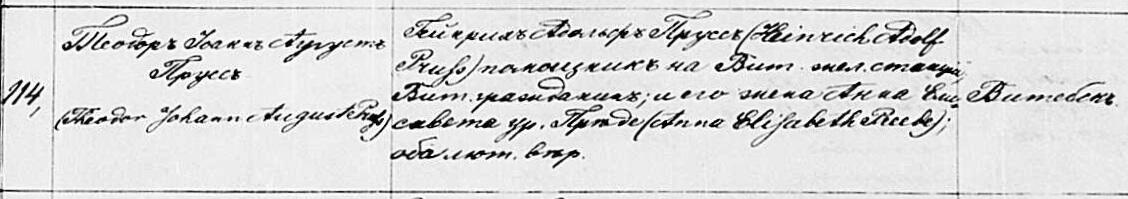 214,
Теодоръ Іоаннъ Августъ
Пруссъ
(Theodor Johann August Pruss)
Гейнрихъ Адольфъ Пруссъ (Heinrich Adolf
Pruss) помощникъ на Вит. жел. станціи,
Вит. гражданинъ; и его жена Анна Ели-
савета ур. Прѣде (Anna Elisabeth Preede);
оба лют. вѣр.
Витебскъ.